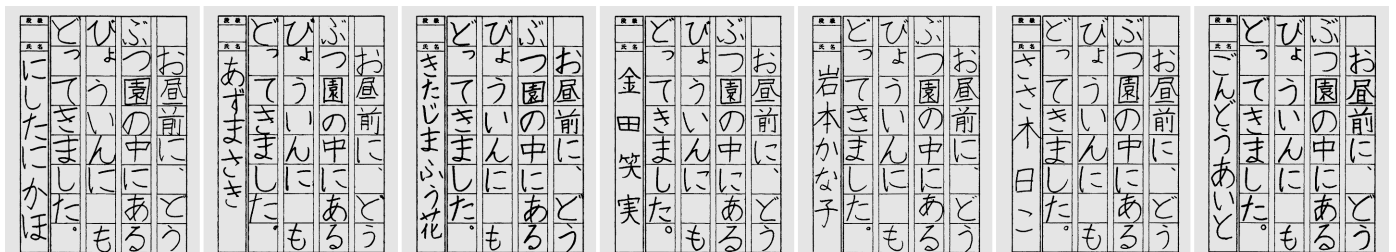 お昼前に、どう
ぶつ園の中にある
びょういんに も
どってきました。
段級
氏名
にしたに かほ
お昼前に、どう
ぶつ園の中にある
びょういんに も
どってきました。
段級
氏名
あずまさき
お昼前に、どう
ぶつ園の中にある
びょういんに も
どってきました。
段級
氏名
きたじまふう花
お昼前に、どう
ぶつ園の中にある
びょういんに も
どってきました。
段級
氏名
金田笑実
お昼前に、どう
ぶつ園の中にある
びょういんに も
どってきました。
段級
氏名
岩本かな子
お昼前に、どう
ぶつ園の中にある
びょういんに も
どってきました。
段級
氏名
ささ木日こ
お昼前に、どう
ぶつ園の中にある
びょういんに も
どってきました。
段級
氏名
ごんどうあいと